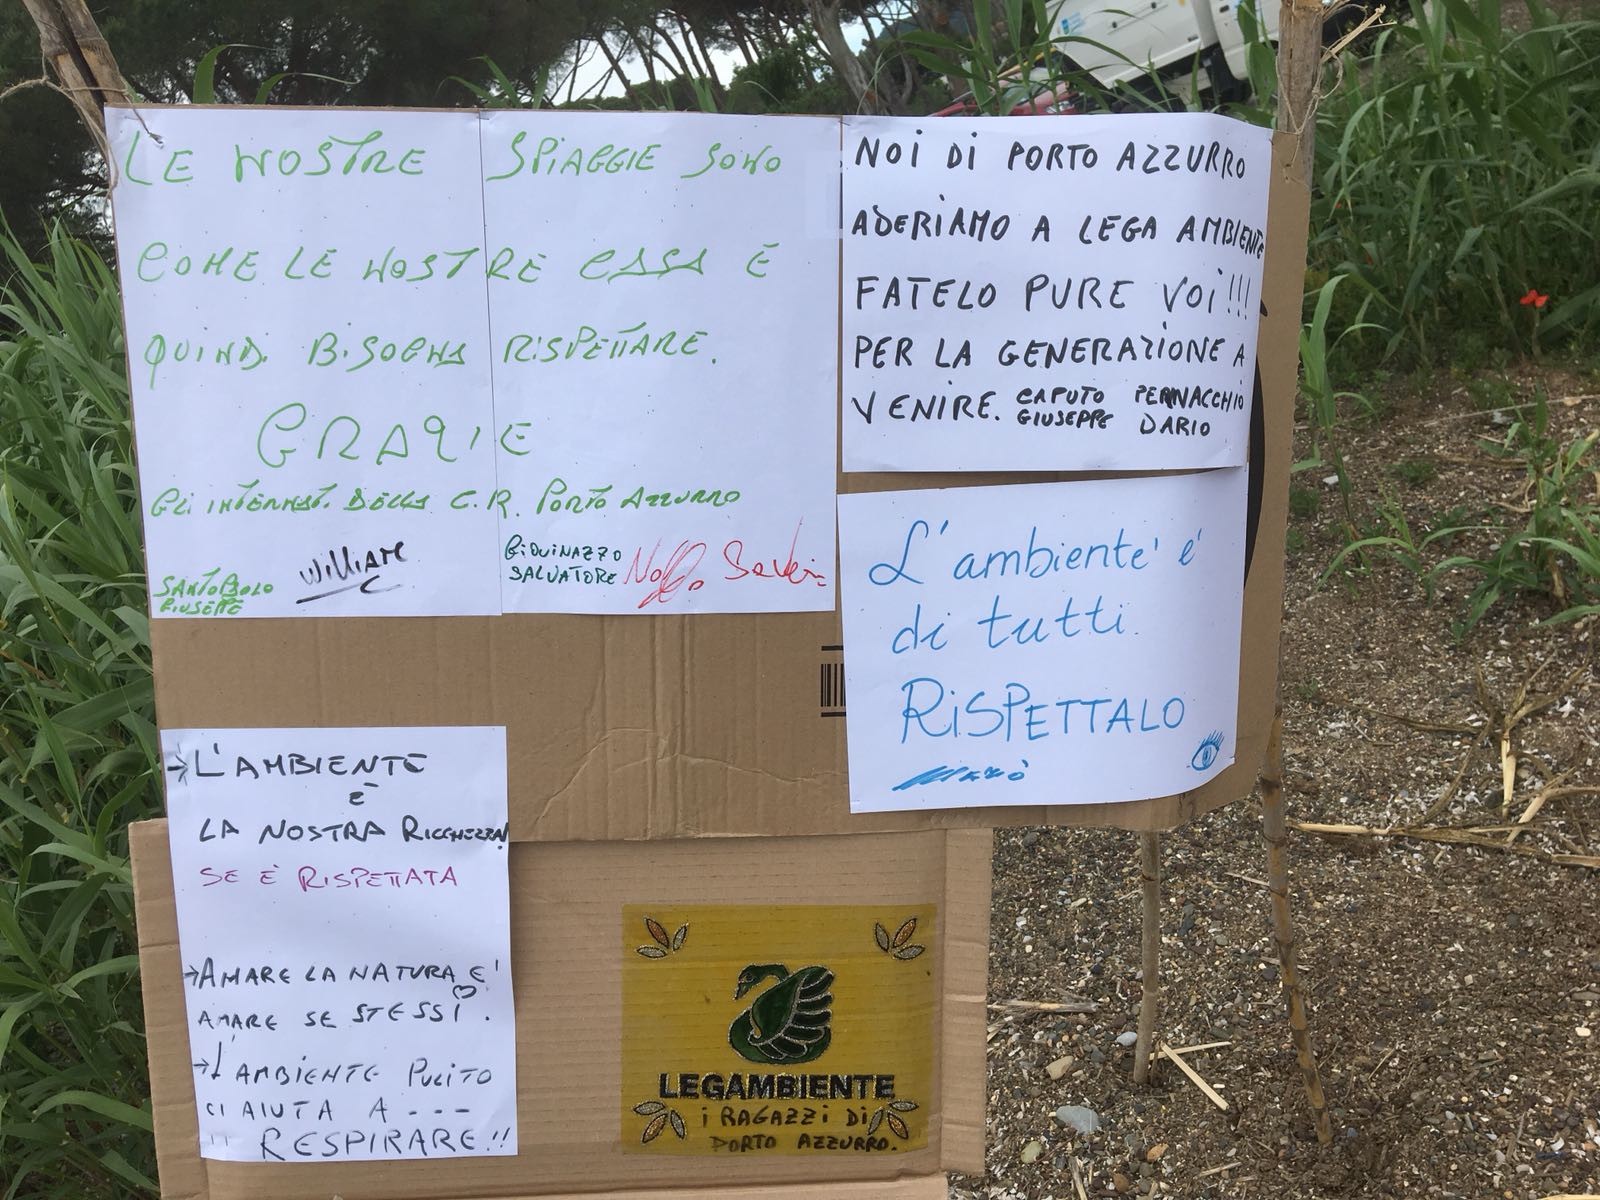 LE NOSTRE SPIAGGIE SONO
COME LE NOSTRE CASA E
QUINDI BISOGNA RISPETTARE.
GRAZIE
GLI INTERNATI DELLA C.R. PORTO AZZURRO
SANTOBOLO
GIUSEPPE
William
GIOVINAZZO
SALVATORE
NOI DI PORTO AZZURRO
ADERIAMO A LEGA AMBIENTE
FATELO PURE VOI!!!
PER LA GENERAZIONE A
VENIRE. CAPUTO PERNACCHIO
GIUSEPPE DARIO
L'ambiente è
di tutti.
RISPETTALO
→ L'AMBIENTE
È
LA NOSTRA RICCHEZZA!
SE È RISPETTATA
→ AMARE LA NATURA E'
AMARE SE STESSI.
→ L'AMBIENTE PULITO
CI AIUTA A ---
" RESPIRARE!!
LEGAMBIENTE
I RAGAZZI DI
PORTO AZZURRO.